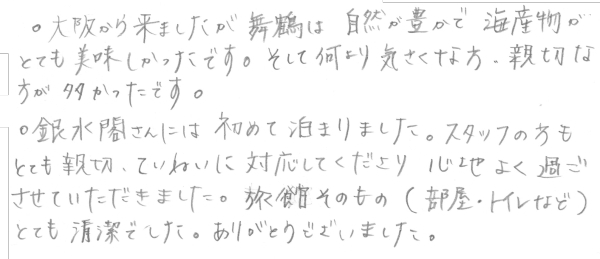 ○大阪から来ましたが舞鶴は 自然が豊かで 海産物が
とても美味しかったです。そして何より気さくな方、親切な
方が多かったです。
○銀水閣さんには 初めて泊まりました。スタッフの方も
とても親切、ていねいに対応してくださり 心地よく過ご
させていただきました。旅館そのもの(部屋・トイレなど)
とても清潔でした。ありがとうございました。